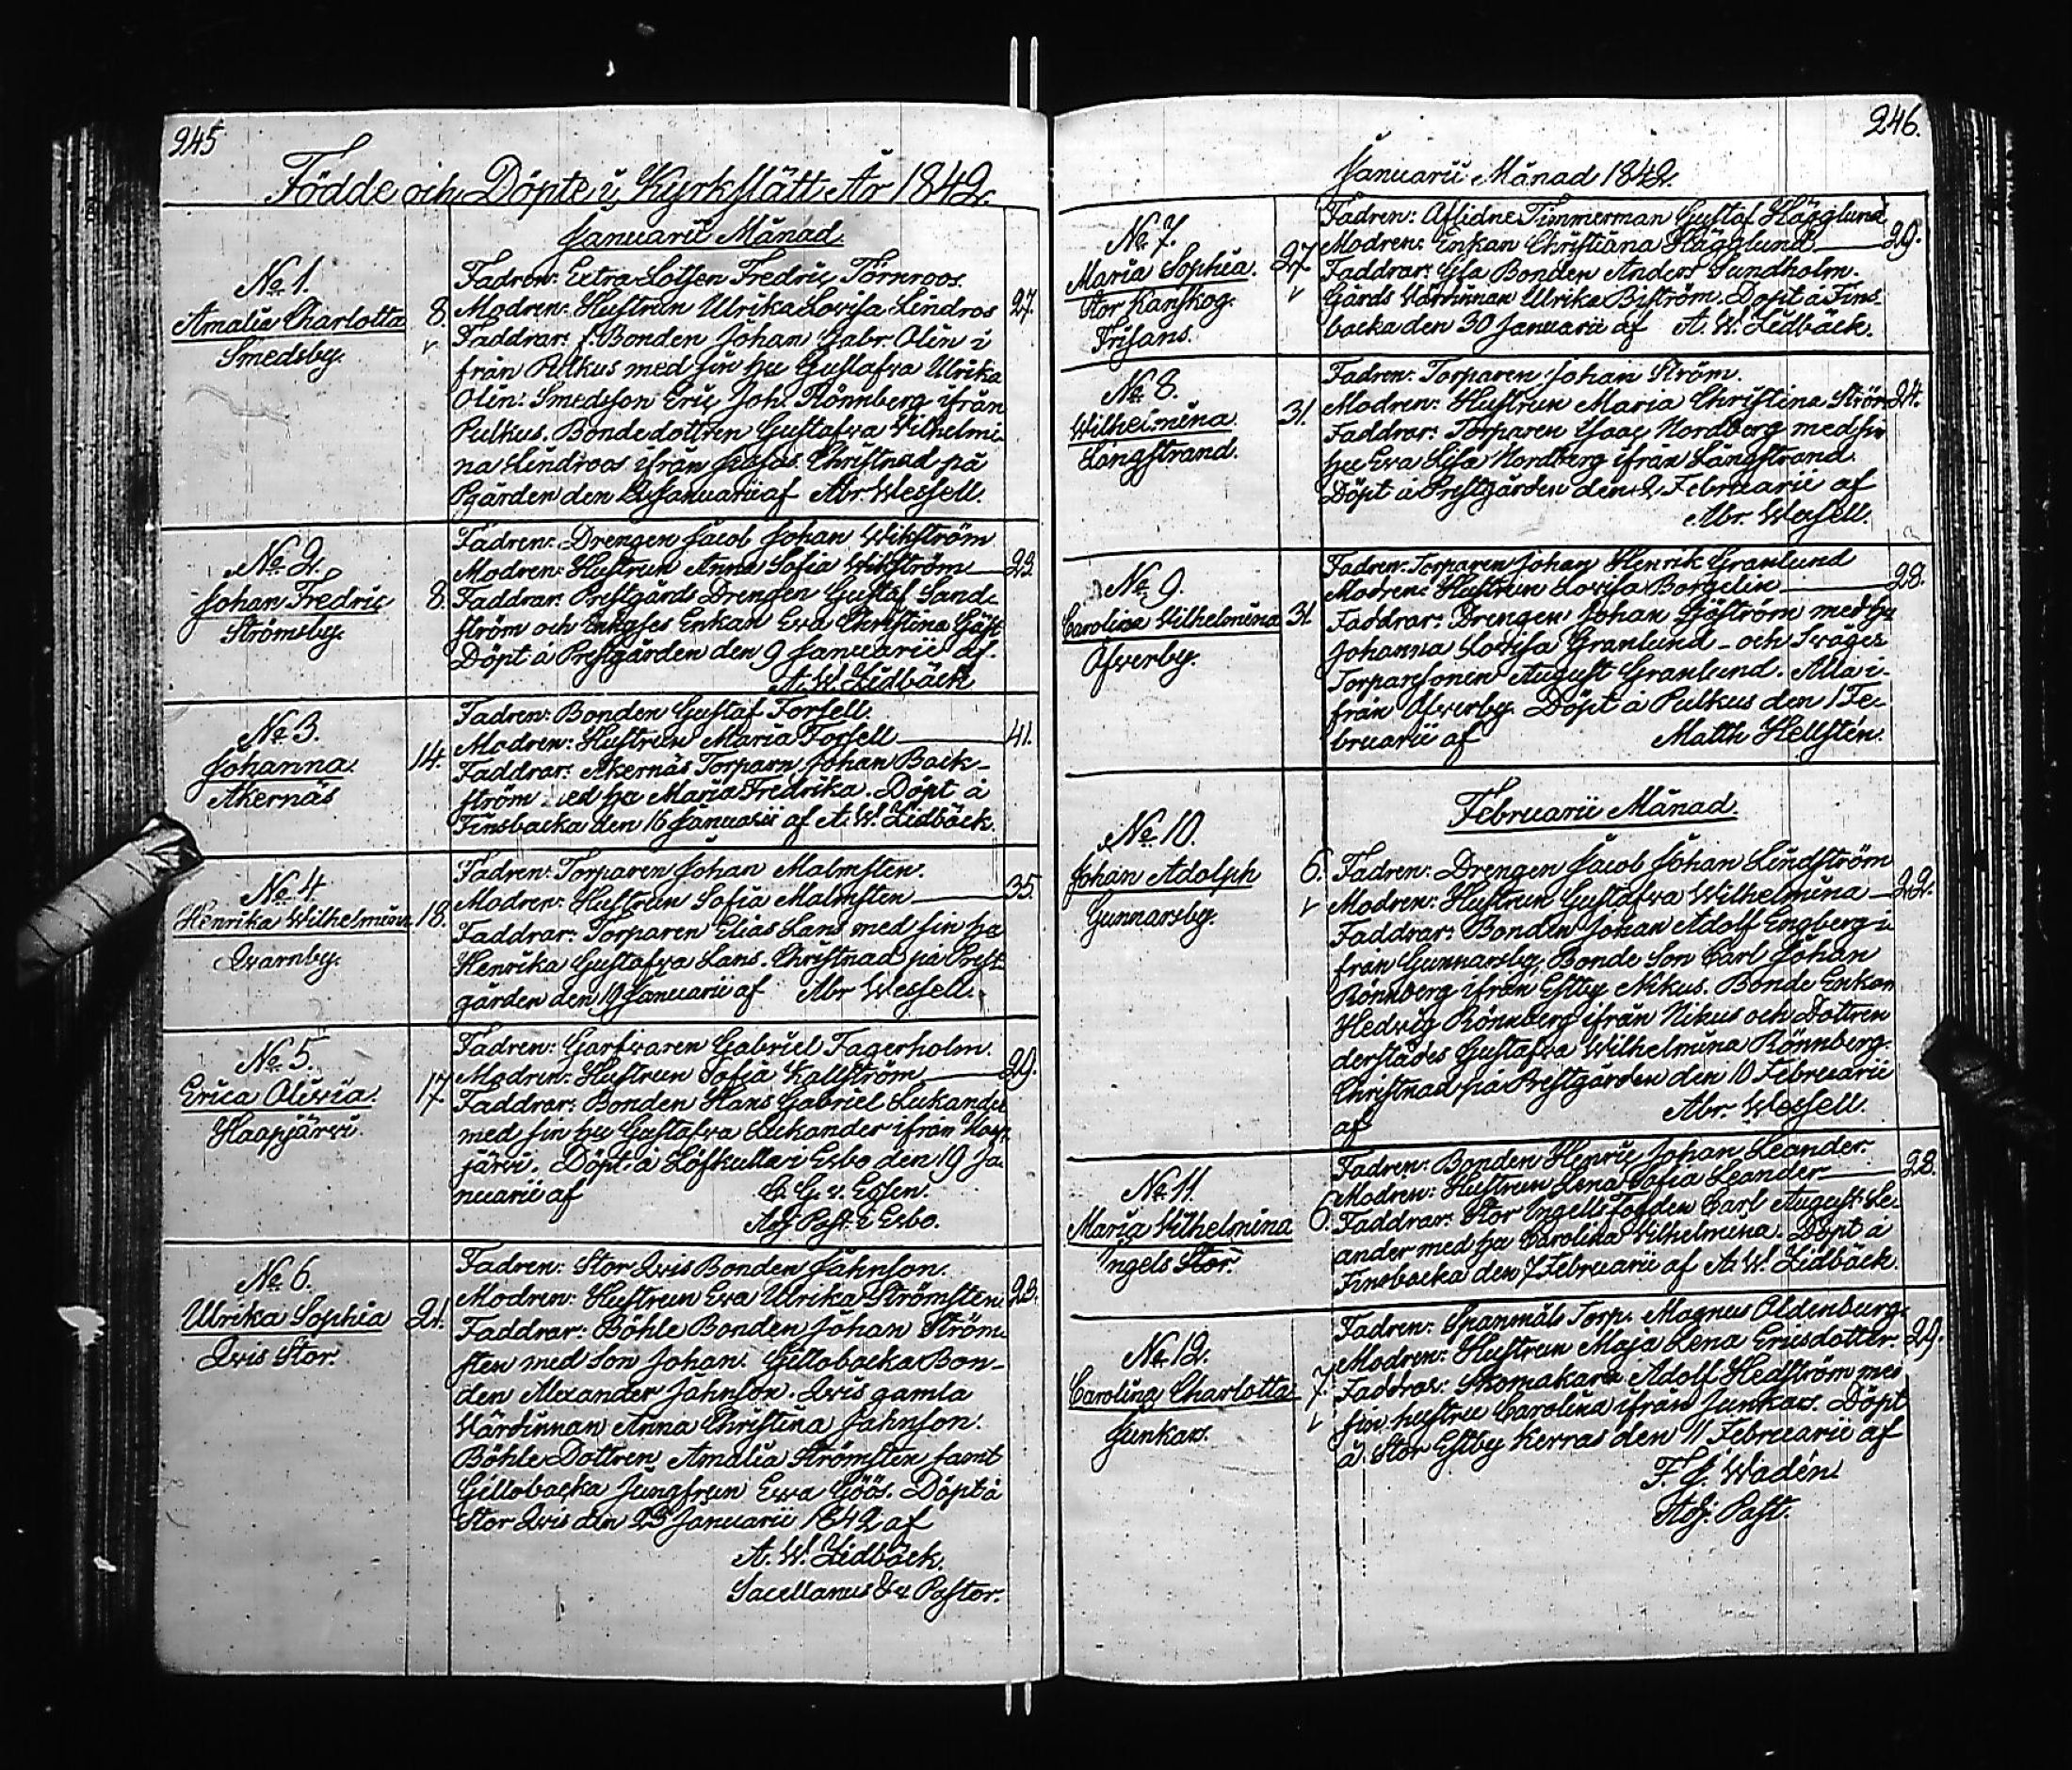 245
Födde och Döpte i Kyrkslätt År 1842.
Januarii Månad.
No 1.
Amalia Charlotta
Smedsby.
8.
Fadren: Extra Lotsen Fredric Törnroos.
Modren: Hustrun Ulrika Lovisa Lindros 27.
Faddrar: f. Bonden Johan Gabr. Olin i
från Pulkus med sin hu Gustafva Ulrika
Olin: Smedsson Eric Joh. Rönnberg ifrån
Pulkus. Bondedottren Gustafva Vilhelmi-
na Lindroos ifrån Christnad på
Pgården den Januarii af Abr Wessell.
No 2.
Johan Fredric
Strömsby.
8.
Fadren: Drengen Jacob Johan Wikström
Modren: Hustrun Anna Sofia Wikström 23.
Faddrar: Prestgårds Drengen Gustaf Sand-
ström och Enkan Eva Christina
Döpt å Prestgården den 9 Januarii af.
A. W. Lidbäck
No 3.
Johanna.
Åkernäs
14.
Fadren: Bonden Gustaf Forsell.
Modren: Hustrun Maria Forsell 41.
Faddrar: Åkernäs Torparn Johan Back-
ström med hu Maria Fredrika. Döpt å
Finsbacka den 16 Januarii af A. W. Lidbäck.
No 4.
Henrika Wilhelmina
Qvarnby.
18.
Fadren: Torparen Johan Malmsten.
Modren: Hustrun Sofia Malmsten 35.
Faddrar: Torparen Elias Lans med sin hu
Henrika Gustafva Lans. Christnad på Prest-
gården den 19 Januarii af Abr Wessell.
No 5.
Erica Olivia.
Haapjärvi.
17.
Fadren: Garfvaren Gabriel Fagerholm.
Modren: Hustrun Sofia Kallström 29.
Faddrar: Bonden Hans Gabriel Lukander
med sin hu Gustafva Lukander ifrån Haap-
järvi. Döpt å Löfkulla i Esbo den 19 Ja-
nuarii af C. G. v. Essen.
Adj. Past. i Esbo.
No 6.
Ulrika Sophia
Qvis Stor.
21.
Fadren: Stor Qvis Bonden Jahnson.
Modren: Hustrun Eva Ulrika Strömsten 23.
Faddrar: Böhle Bonden Johan Ström-
sten med Son Johan. Gillobacka Bon-
den Alexander Jahnson. Qvis gamla
Värdinnan Anna Christina Jahnson.
Böhle Dottren Amalia Strömsten samt
Gillobacka Jungfrun Eva Göös. Döpt å
Stor Qvis den 23 Januarii 1842 af
A. W. Lidbäck.
Sacellanus & v. Pastor.
246.
Januarii Månad 1842.
No 7.
Maria Sophia.
Stor Kanskog.
Frisans.
27
Fadren: Aflidne Timmerman Gustaf Hägglund
Modren: Enkan Christiana Hägglund 29.
Faddrar: Bonden Anders Sundholm.
Gårds Värdinnan Ulrika Biström. Döpt å Fins-
backa den 30 Januarii af A. W. Lidbäck.
No 8.
Wilhelmina
Långstrand.
31.
Fadren: Torparen Johan Ström.
Modren: Hustrun Maria Christina Ström 24.
Faddrar: Torparen Isaac Nordberg med sin
hu Eva Lisa Nordberg ifrån Långstrand.
Döpt å Prestgården den 2 Februarii af
Abr. Wessell.
No 9.
Carolina Wilhelmina
Öfverby.
31.
Fadren: Torparen Johan Henrik Granlund
Modren: Hustrun Lovisa Borgelin 28.
Faddrar: Drengen Johan Sjöström med hu
Johanna Lovisa Granlund - och Svåger
Torparesonen August Granlund. Alla i-
från Öfverby. Döpt å Pulkus den 1 Fe-
bruarii af Matth Hellstén.
Februarii Månad.
No 10.
Johan Adolph
Gunnarsby.
6.
Fadren: Drengen Jacob Johan Lindström
Modren: Hustrun Gustafva Wilhelmina 22.
Faddrar: Bonden Johan Adolf Engberg i
från Gunnarsby, Bonde Son Carl Johan
Rönnberg ifrån Estby Nikus. Bonde Enkan
Hedvig Rönnberg ifrån Nikus och Dottren
derstädes Gustafva Wilhelmina Rönnberg.
Christnad på Prestgården den 10 Februarii
af Abr. Wessell.
No 11.
Maria Wilhelmina
Ingels Stor.
6.
Fadren: Bonden Henric Johan Leander.
Modren: Hustrun Lena Sofia Leander 28.
Faddrar: Stor Ingells Fogden Carl August Le-
ander med hu Carolina Wilhelmina. Döpt å
Finsbacka den 7 Februarii af A. W. Lidbäck.
No 12.
Carolina Charlotta
Junkars.
7.
Fadren: Spanmåls Torp. Magnus Oldenburg.
Modren: Hustrun Maja Lena Ericsdotter. 29.
Faddrar: Skomakare Adolf Hedström med
sin hustru Carolina ifrån Junkars. Döpt
å Stor Estby Kerras den 11 Februarii af
F. G. Wadén.
Adj. Past.